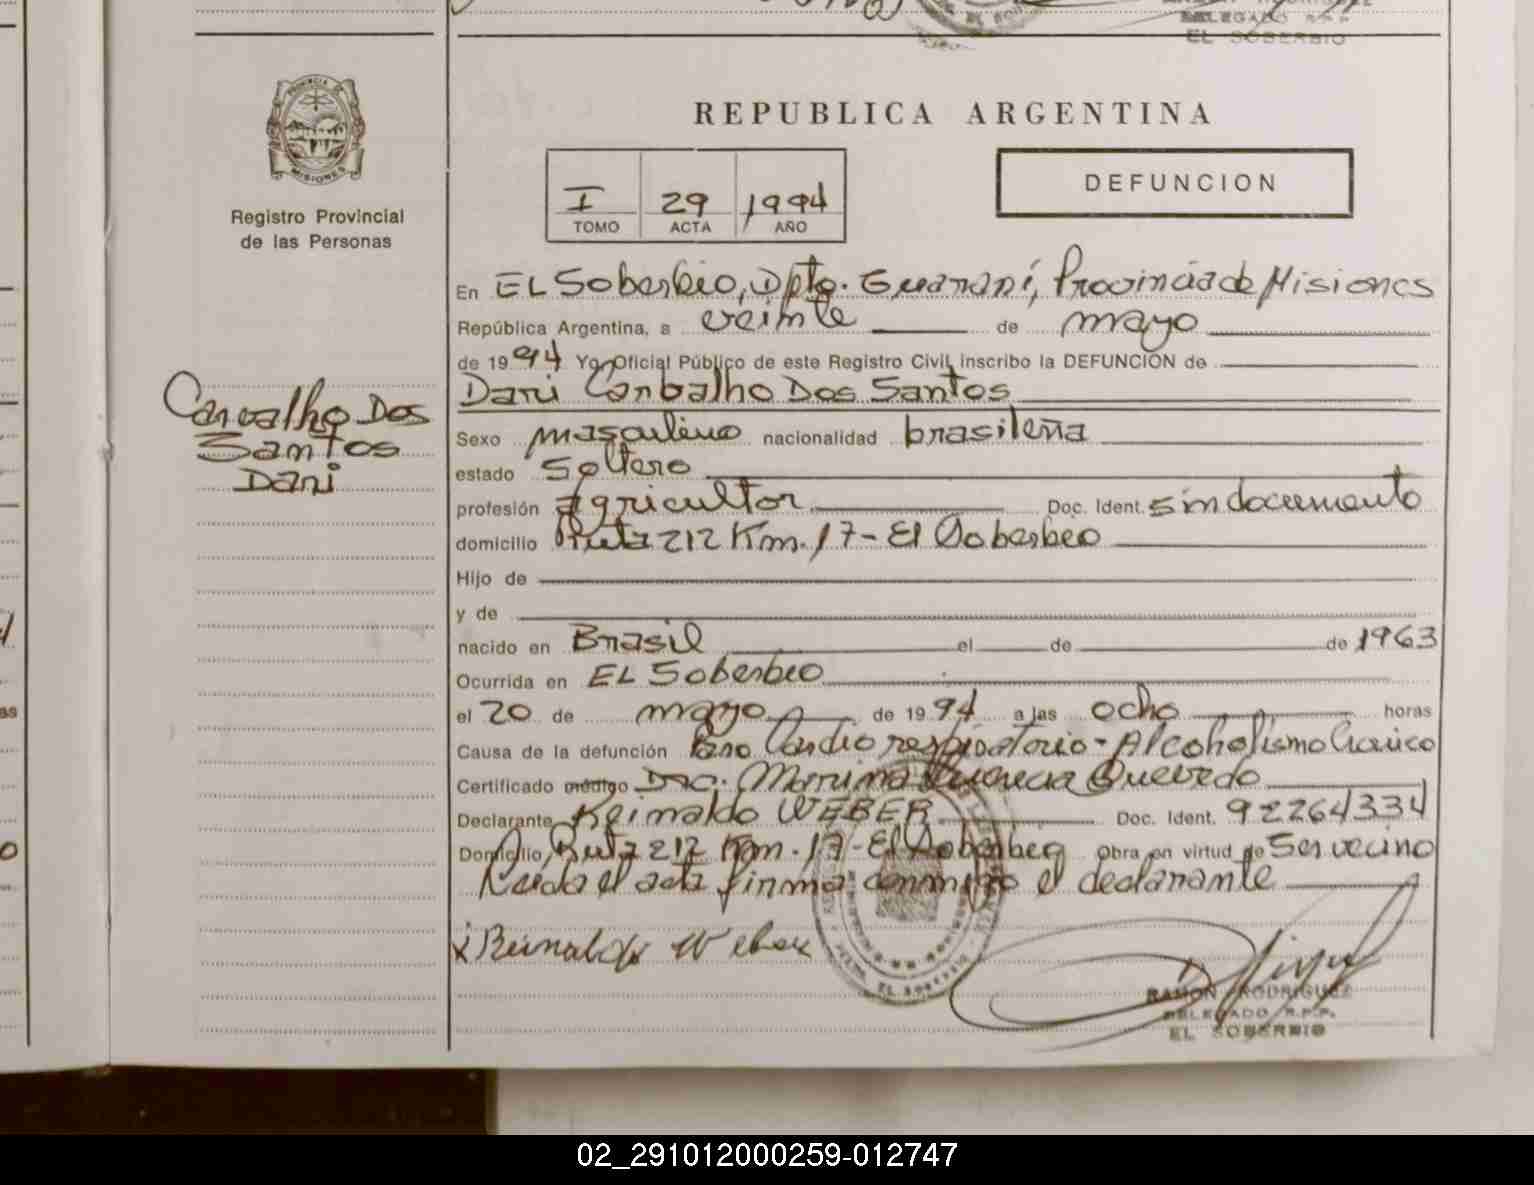 DELEGADO R.P.P.
EL SOBERBIO
PROVINCIA DE
MISIONES
Registro Provincial
de las Personas
REPUBLICA ARGENTINA
I 29 1994
TOMO ACTA AÑO
DEFUNCION
En EL Soberbio, Dpto. Guaraní, Provincia de Misiones
República Argentina, a veinte de mayo
de 1994 Yo, Oficial Público de este Registro Civil, inscribo la DEFUNCION de
Dari Carbalho Dos Santos
Carvalho Dos
Santos
Dari
Sexo masculino nacionalidad brasileña
estado Soltero
profesión agricultor Doc. Ident. sin documento
domicilio Ruta 212 Km. 17 - El Soberbio
Hijo de
y de
nacido en Brasil el de de 1963
Ocurrida en EL Soberbio
el 20 de mayo de 1994 a las ocho horas
Causa de la defunción Paro Cardio respiratorio - Alcoholismo Cronico
Certificado médico Quevedo
Declarante Reinaldo WEBER Doc. Ident. 92264334
Domicilio Ruta 212 Km. 17 - El Soberbio Obra en virtud de Ser vecino
Leida el acta firma conmigo el declarante
x Reinaldo Weber
EL SOBERBIO
RAMON RODRIGUEZ
DELEGADO R.P.P.
EL SOBERBIO
02_291012000259-012747